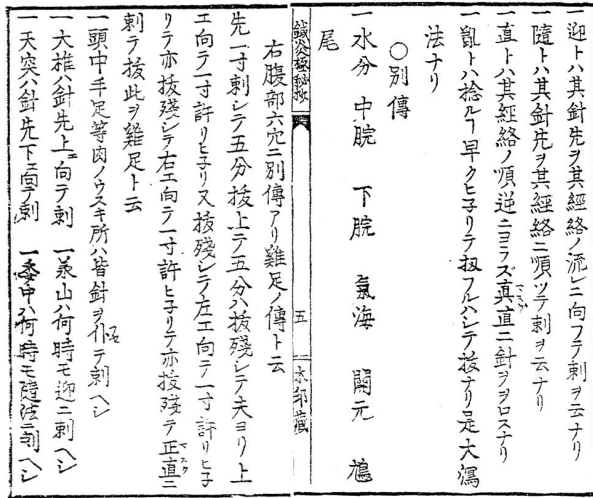 一迎トハ其針先ヲ其經絡ノ流レニ向フテ刺ヲ云ナリ
一隨トハ其針先ヲ其經絡ニ順ツテ刺ヲ云ナリ
一直トハ其經絡ノ順逆ニヨラズ真直ニ針ヲヲロスナリ
一亂トハ捻ルヿ早クヒ子リテ扱フルハシテ拔ナリ是大瀉
法ナリ
○別傳
一水分 中脘 下脘 氣海 關元 鳩
尾
鍼灸極秘抄
五
木印藏
右腹部六穴ニ別傳アリ雞足ノ傳ト云
先一寸刺シテ五分拔上テ五分ハ拔殘シテ夫ヨリ上
エ向テ一寸許リヒ子リ又拔殘シテ左エ向テ一寸許リヒ子
リテ亦拔殘シテ右エ向テ一寸許ヒ子リテ亦拔殘テ正直ニ
刺テ拔此ヲ雞足ト云
一頭中手足等肉ノウスキ所ハ皆針ヲ仆テ刺ヘシ
一大椎ハ針先上ニ向テ刺 一承山ハ何時モ迎ニ刺ヘシ
一天突ハ針先下ニ向テ刺 一委中ハ何時モ隨法ニ刺ヘシ